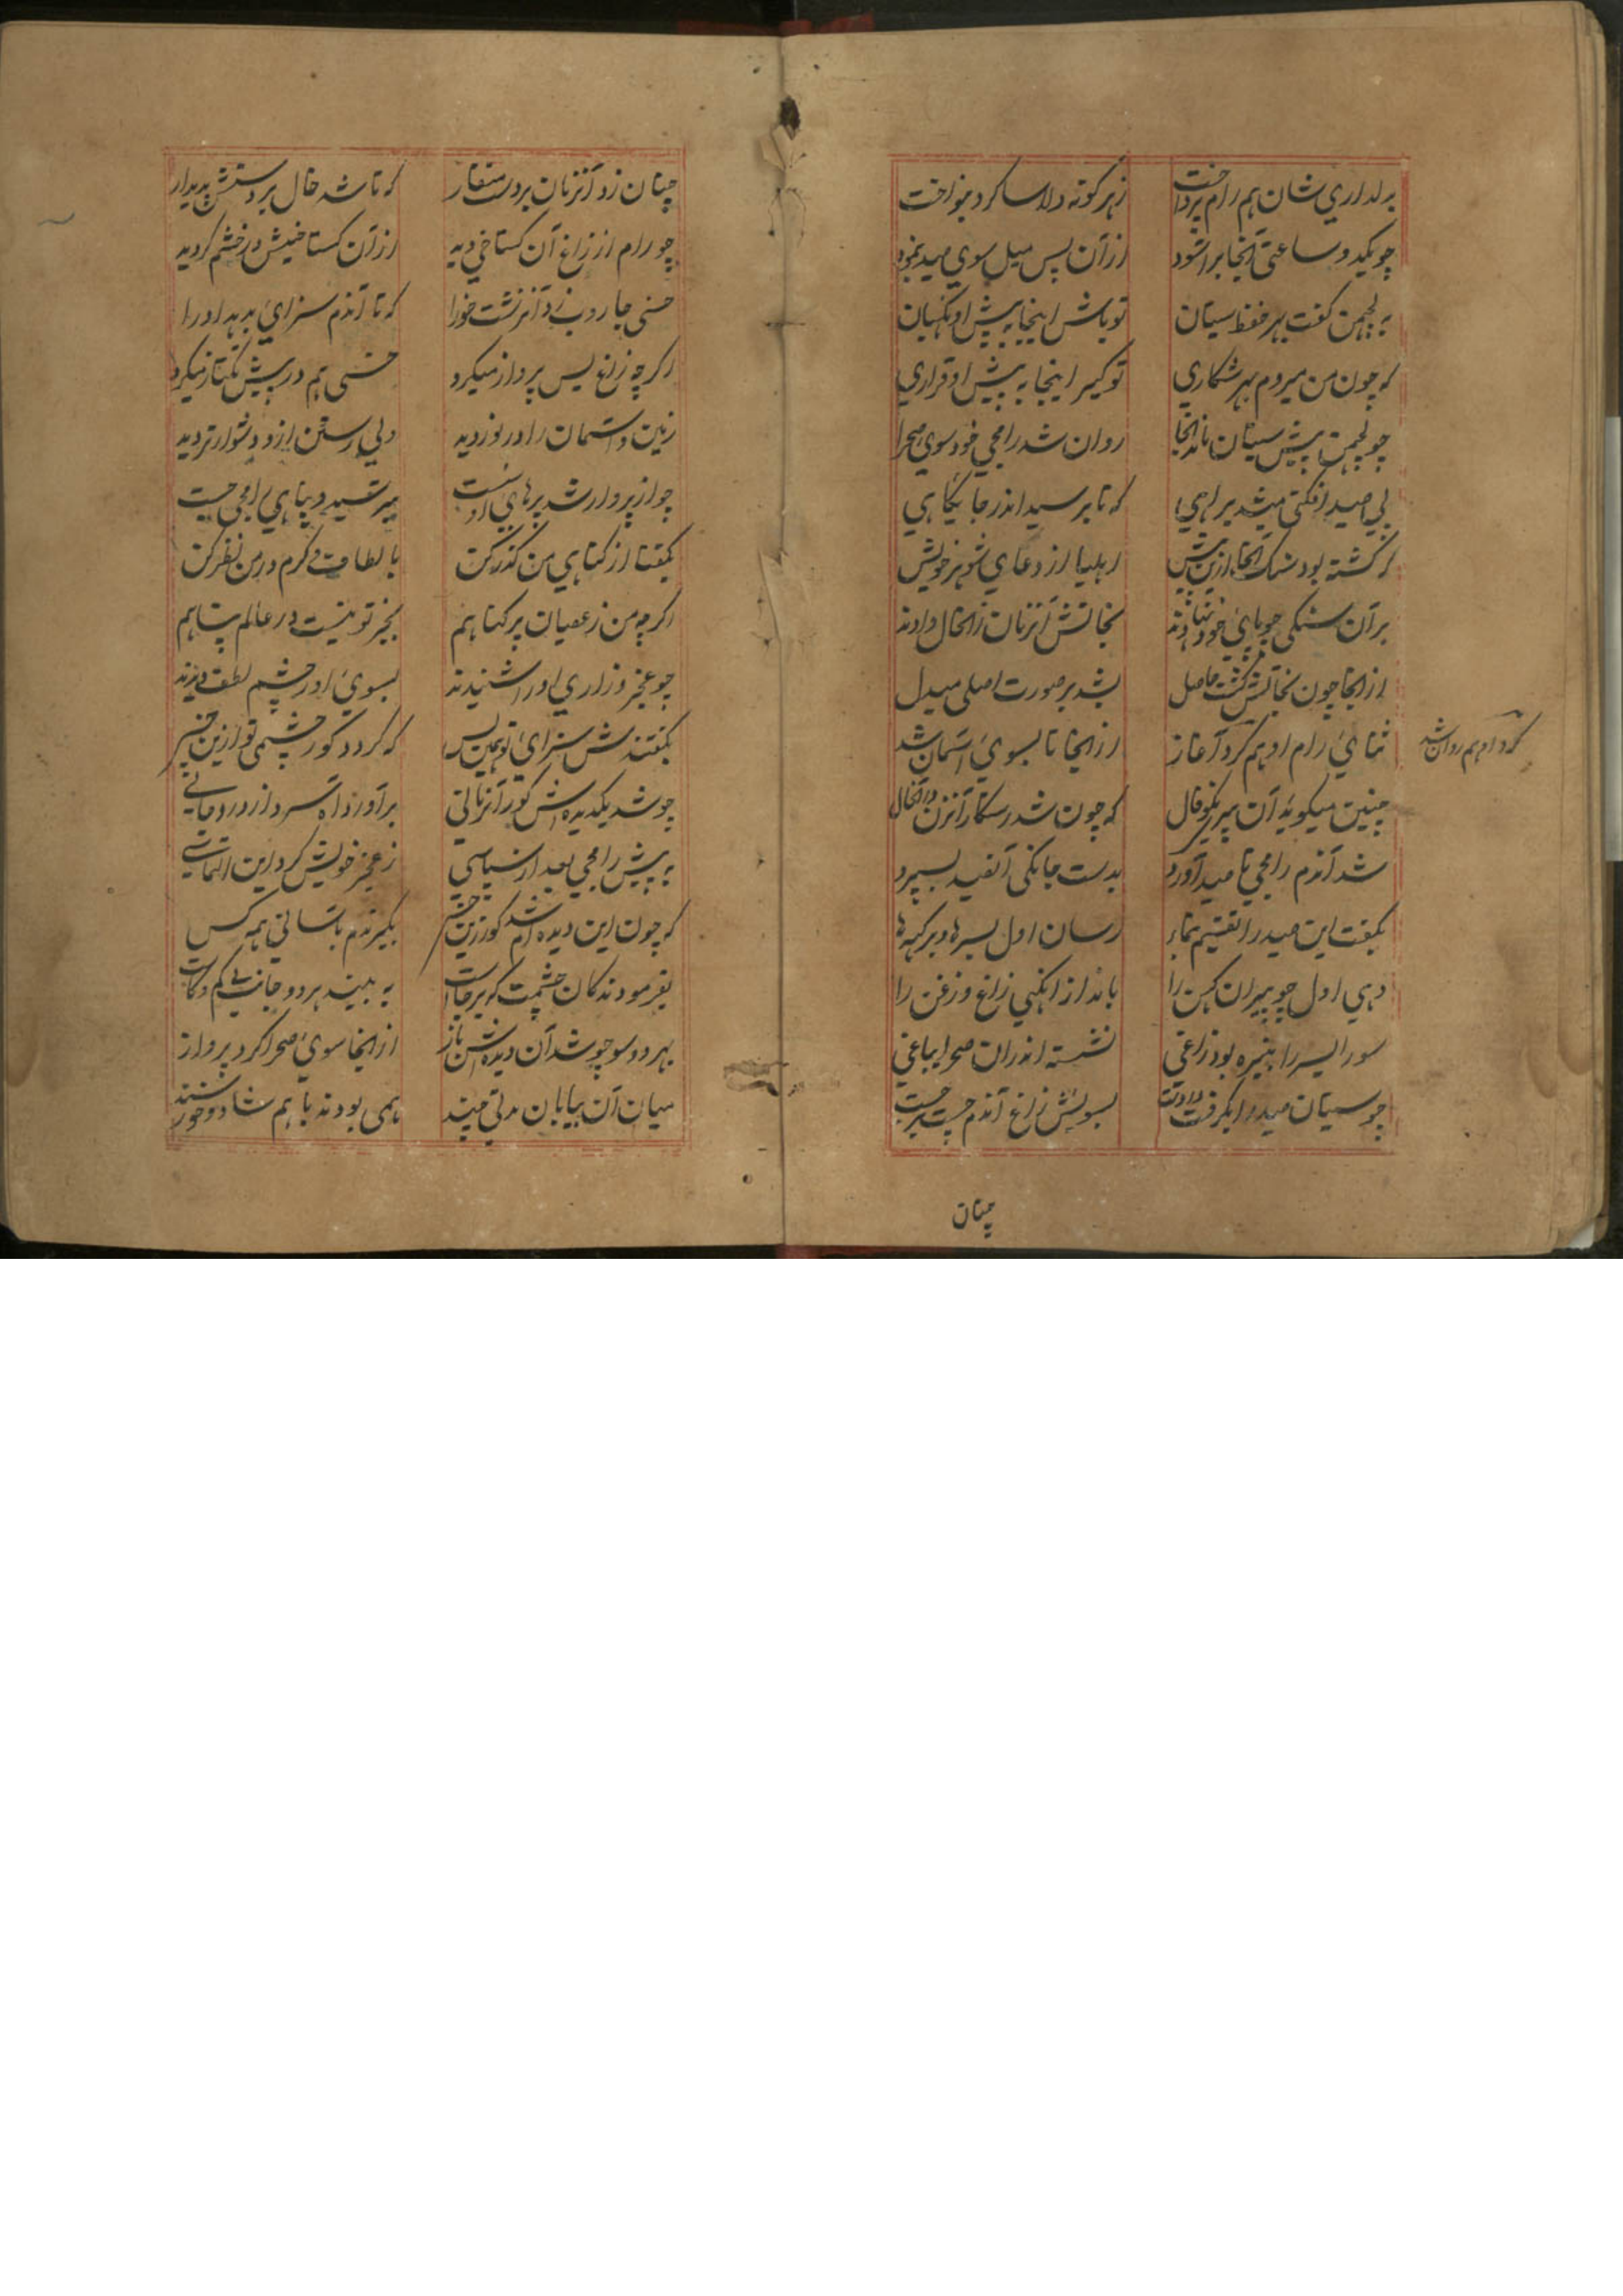 به دلداری شان هم رام پرداخت زهر گونه دلاسا کرد بنواخت
چو یکدو ساعتی آنجا براسود ازآن پس میل سوی صید بنمود
به لچمن گفت بهر حفظ سیتان تو باش اینجا به پیش او نگهبان
که چون من میروم بهر شکاری تو گیر اینجا به پیش او قراری
چو لچمن پیش سیتان ماند آنجا روان شد رامجی خود سوی صحرا
پی صید افکنی میشد براهی که تا برسید اندر جایگاهی
که گشته بود سنگ آنجا ازین پیش اهلیا از دعای شوهر خویش
بر آن سنگی چو پای خود نهادند نجاتش آنزمان زانحال دادند
ازانجا چون نجاتش گشت حاصل بشد بر صورت اصلی مبدل
ثنای رام او هم کرد آغاز ازانجا تا بسوی آسمان شد
کرد او هم روان شد
چنین میگوید آن پیر نکوفال که چون شد رستگار آنزن درانحال
شد آندم رامجی تا صید آورد بدست جانکی آنصید بسپرد
بگفت این صید را تقسیم بنماء رسان اول بسرها و برکهها
دهی اول چو پیران کهن را بانداز افکنی زاغ و زغن را
سورایسر را نبیره بود زاغی نشسته اندران صحرا بباغی
چو سیتان صید را بگرفت در دست بسویش زاغ آندم چست برجست
چنان
چنان زد آنزمان بر دست منقار که تا شد خال بر دستش پدیدار
چو رام از زاغ آن گستاخی دید ازآن گستاخیش در خشم گردید
خسی جاروب زد آنزشت خو را که تا آندم سزای بدهد او را
اگرچه زاغ بس پرواز میکرد خسی هم در پیش تکتاز میکرد
زمین و آسمان را در نوردید ولی رستن ازو دشوارتر دید
چو از پرواز شد پرهای او سست بترسید و پناهی رامجی جست
بگفتا از گناهی من گذر کن بالطاف و کرم در من نظر کن
اگرچه من ز عصیان پر گناهم بجز تو نیست در عالم پناهم
چو عجز و زاری او را شنیدند بسوی او ز چشم لطف دیدند
بگفتندش سزای تو همین بس که گردد کور چشمی تو ازین خس
چو شد یکدیده اش کور آنزمانی برآورد آه سرد از درد جانی
به پیش رامجی بعد از سپاسی ز عجز خویش کرد این التماسی
که چون این دیده ام شد کور زین خس بگیرندم باسانی همه کس
بفرمودند کان چشمت که برجاست به بیند هر دو جانب بی کم و کاست
بهر دو سو چو شد آن دیده اش باز ازانجا سوی صحرا کرد پرواز
میان آن بیابان مدتی چند همی بودند با هم شاد و خورسند